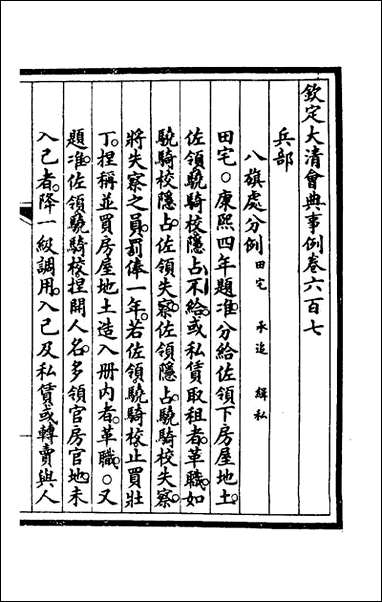 欽定大清會典事例卷六百七
兵部
八旗處分例 田宅 承追 緝私
田宅○康熙四年題准分給佐領下房屋地土。
佐領驍騎校隱占不給。或私賃取租者革職。如
驍騎校隱占。佐領失察。佐領隱占。驍騎校失察。
將失察之員。罰俸一年。若佐領驍騎校。止買壯
丁。捏稱並買房屋地土造入册內者。革職。○又
題准。佐領驍騎校。捏開人名。多領官房官地。未
入己者。降一級調用。入己及私賃。或轉賣與人